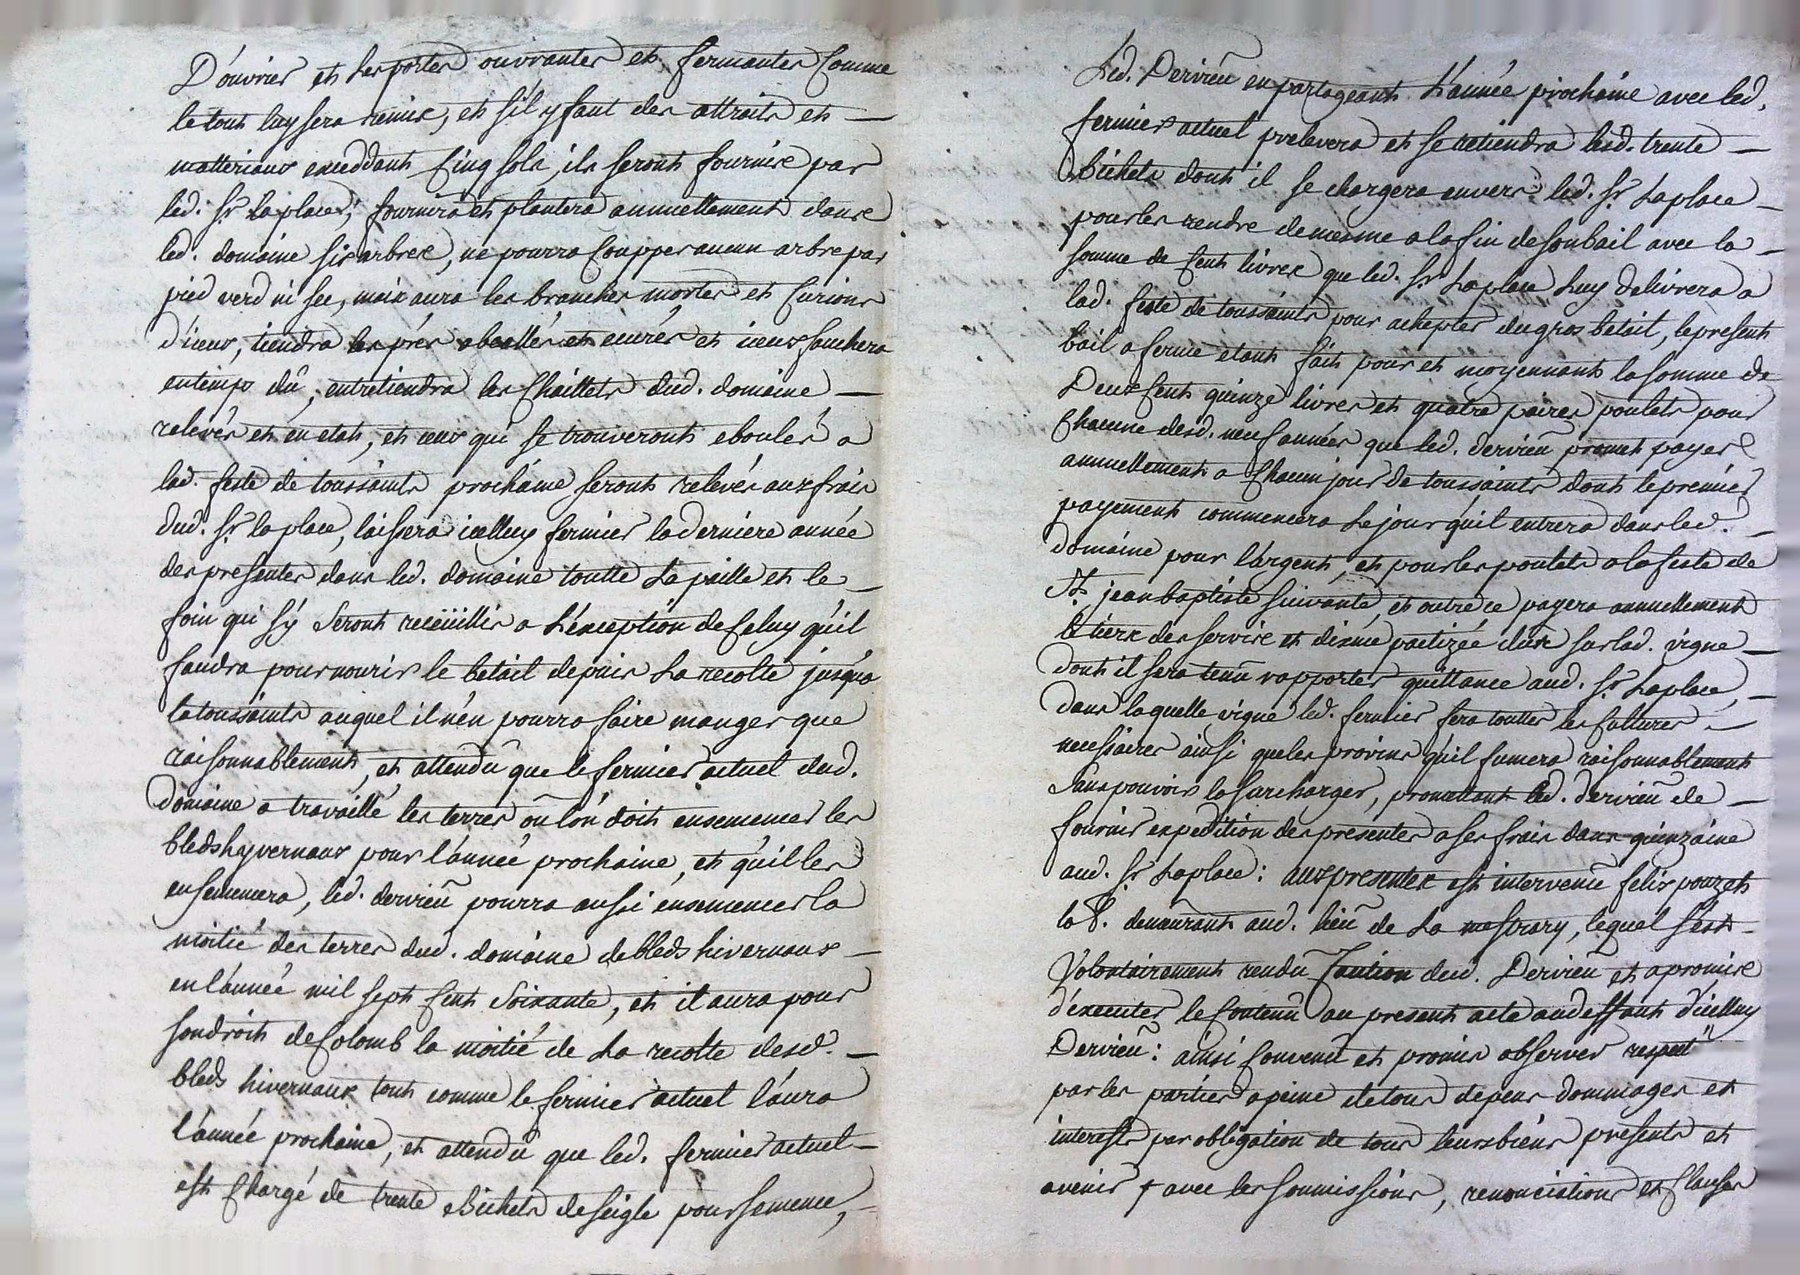 D'ouvrier et les portes ouvrantes et fermantes Comme
le tout luy sera remis, et s'il y faut des attraits et
matteriaux exceddant Cinq sols, ils seront fournis par
led. Sr. Laplace, fournira et plantera annuellement dans
led. domaine six arbres, ne pourra Coupper aucun arbre par
pied verd ni sec, mais aura les branches mortes et Curions
d'iceux, tiendra les prés et eurés et iceux fauchera
en temps dû, entretiendra les Chaillets dud. domaine
relevés et en etat, et ceux qui se trouveront eboulés a
lad. feste de toussaints prochaine seront relevés aux frais
dud. Sr. la place, laissera icelluy fermier la derniere année
des presentes dans led. domaine toutte La paille et le
foin qui s'y seront recüillis a L'exception de Celuy qu'il
faudra pour nourir le betail depuis La recolte jusqua
la toussaints auquel il n'en pourra faire manger que
raisonnablement, et attendu que le fermier actuel dud.
domaine a travaillé les terres où l'on doit ensemencer les
bleds hyvernaux pour l'année prochaine, et qu'il les
ensemencera, led. dervieu pourra aussi ensemencer la
moitié des terres dud. domaine de bleds hivernaux
en l'année mil sept Cent Soixante, et il aura pour
son droit de Colomb la moitié de La recolte desd.
bleds hivernaux tout comme le fermier actuel l'aura
l'année prochaine, et attendu que led. fermier actuel
est Chargé de trente Bichets de seigle pour semence,
Led. Dervieu en partageant L'année prochaine avec led.
fermier actuel prelevera et se retiendra lesd. trente
Bichets dont il se chargera envers led. Sr. Laplace
pour les rendre de mesme a la fin de son bail avec la
somme de Cent livres que led. Sr. Laplace Luy delivrera a
lad. feste de toussaints pour achepter du gros betail, le present
bail a ferme etant fait pour et moyennant la somme de
Deux Cent quinze livres et quatre paires poulets pour
Chacune desd. neuf années que led. dervieu promet payer
annuellement a Chacun jour de toussaints dont le premier
payement commencera Le jour qu'il entrera dans led.
domaine pour l'argent, et pour les poulets a la feste de
St. jean baptiste suivante, et outre ce payera annuellement
le tiers des servis et disme pactizée dus sur lad. vigne
dont il sera tenu rapporter quittance aud. Sr. Laplace,
dans laquelle vigne led. fermier fera touttes les Cultures
necessaires ainsi que les provins qu'il fumera raisonnablement
sans pouvoir la surcharger, promettant led. dervieu de
fournir expedition des presentes a ses frais dans quinzaine
aud. Sr. Laplace : aux presentes est intervenu felix pouzet
demeurant aud. lieu de La mastrary, lequel s'est
Volontairement rendu Caution dud. Dervieu et a promis
d'executer le Contenu au present acte audeffaut d'icelluy
Dervieu : ainsi Convenu et promis observer respect
par les parties a peine de tous depens dommages et
interests par obligation de tous leurs biens presents et
avenir + avec les soumissions, renonciations et Clauses